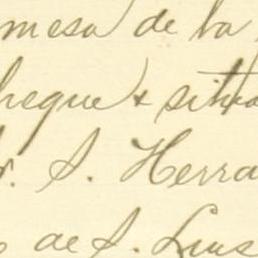 mesa de la
heque & situa
r. S. Herra
de S. Luis